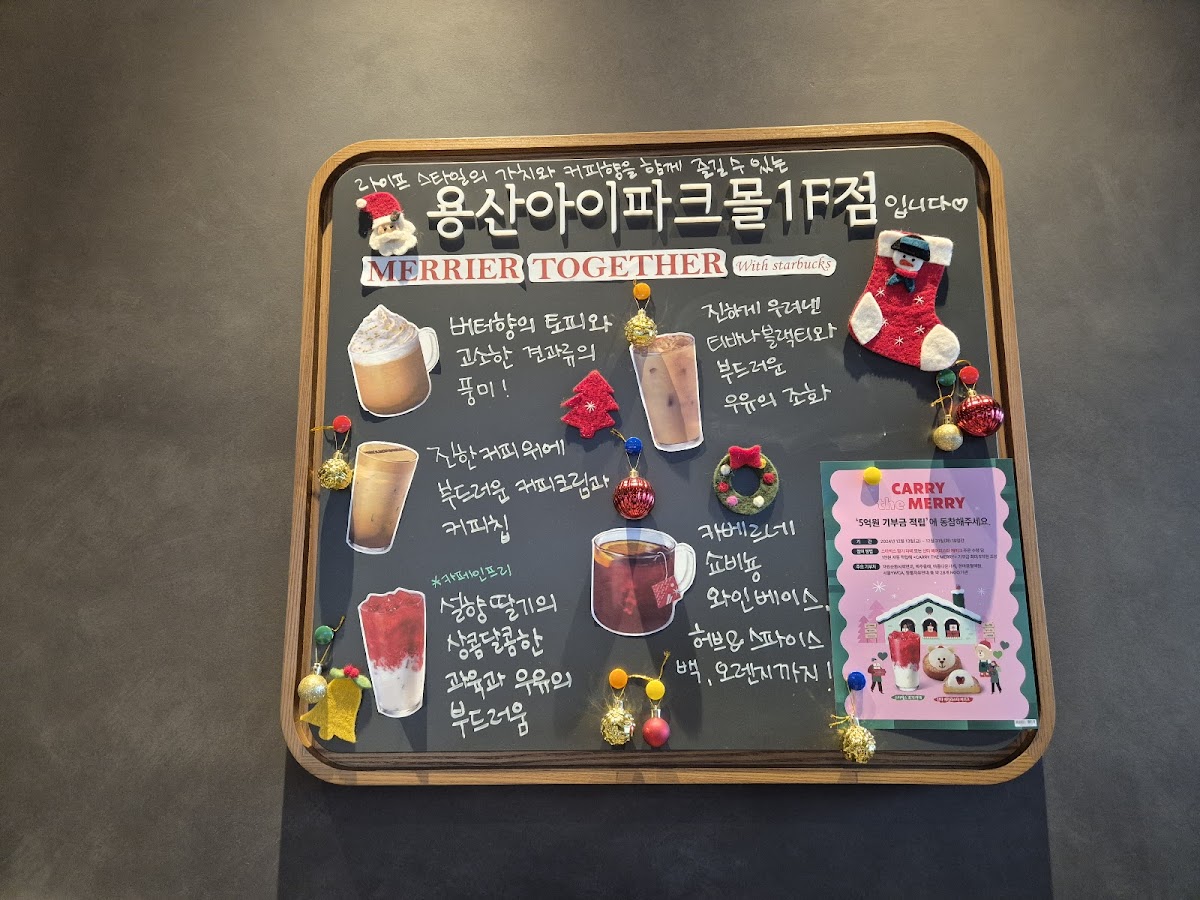 라이프 스타일의 가치와 커피향을 함께 즐길 수 있는
용산아이파크몰1F점 입니다♡
MERRIER TOGETHER With starbucks
버터향의 토피와
고소한 견과류의
풍미!
진하게 우려낸
티바나 블랙티와
부드러운
우유의 조화
진한 커피 위에
부드러운 커피크림과
커피칩
카베르네
쇼비뇽
와인베이스,
허브& 스파이스
백, 오렌지까지!
*카페인프리
설향 딸기의
상콤달콤한
과육과 우유의
부드러움
CARRY
the MERRY
'5억원 기부금 적립'에 동참해주세요.
기 간
참여 방법
주요 기부처